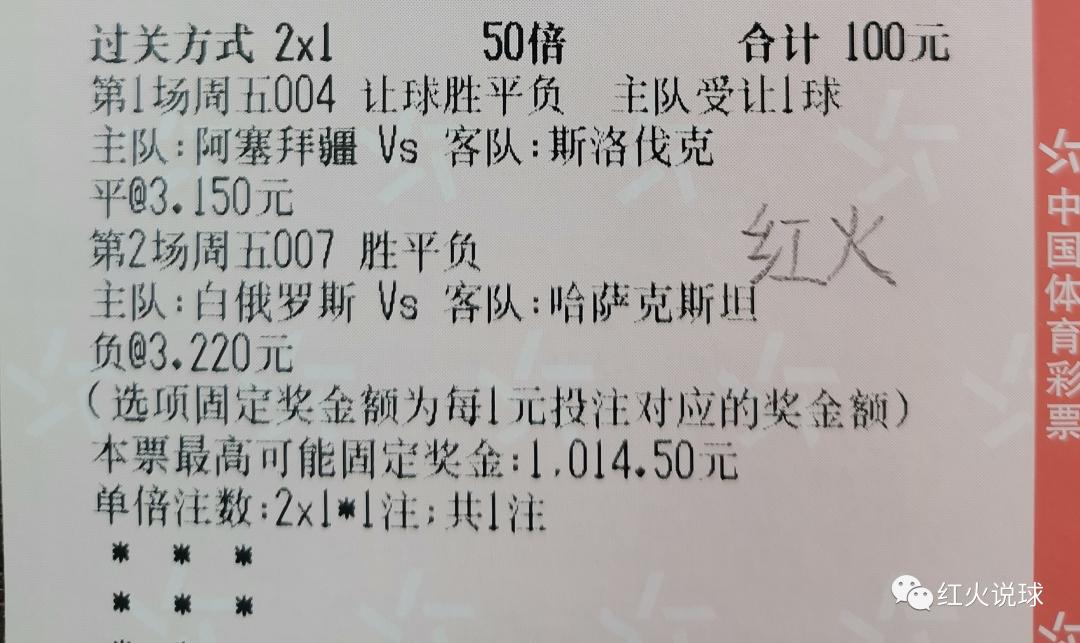 过关方式 2x1 50倍 合计 100元
第1场周五004 让球胜平负 主队受让1球
主队:阿塞拜疆 Vs 客队:斯洛伐克
平@3.150元
第2场周五007 胜平负
主队:白俄罗斯 Vs 客队:哈萨克斯坦
负@3.220元
(选项固定奖金额为每1元投注对应的奖金额)
本票最高可能固定奖金:1,014.50元
单倍注数:2x1*1注;共1注
* * *
* * *
红火
中国体育彩票
红火说球